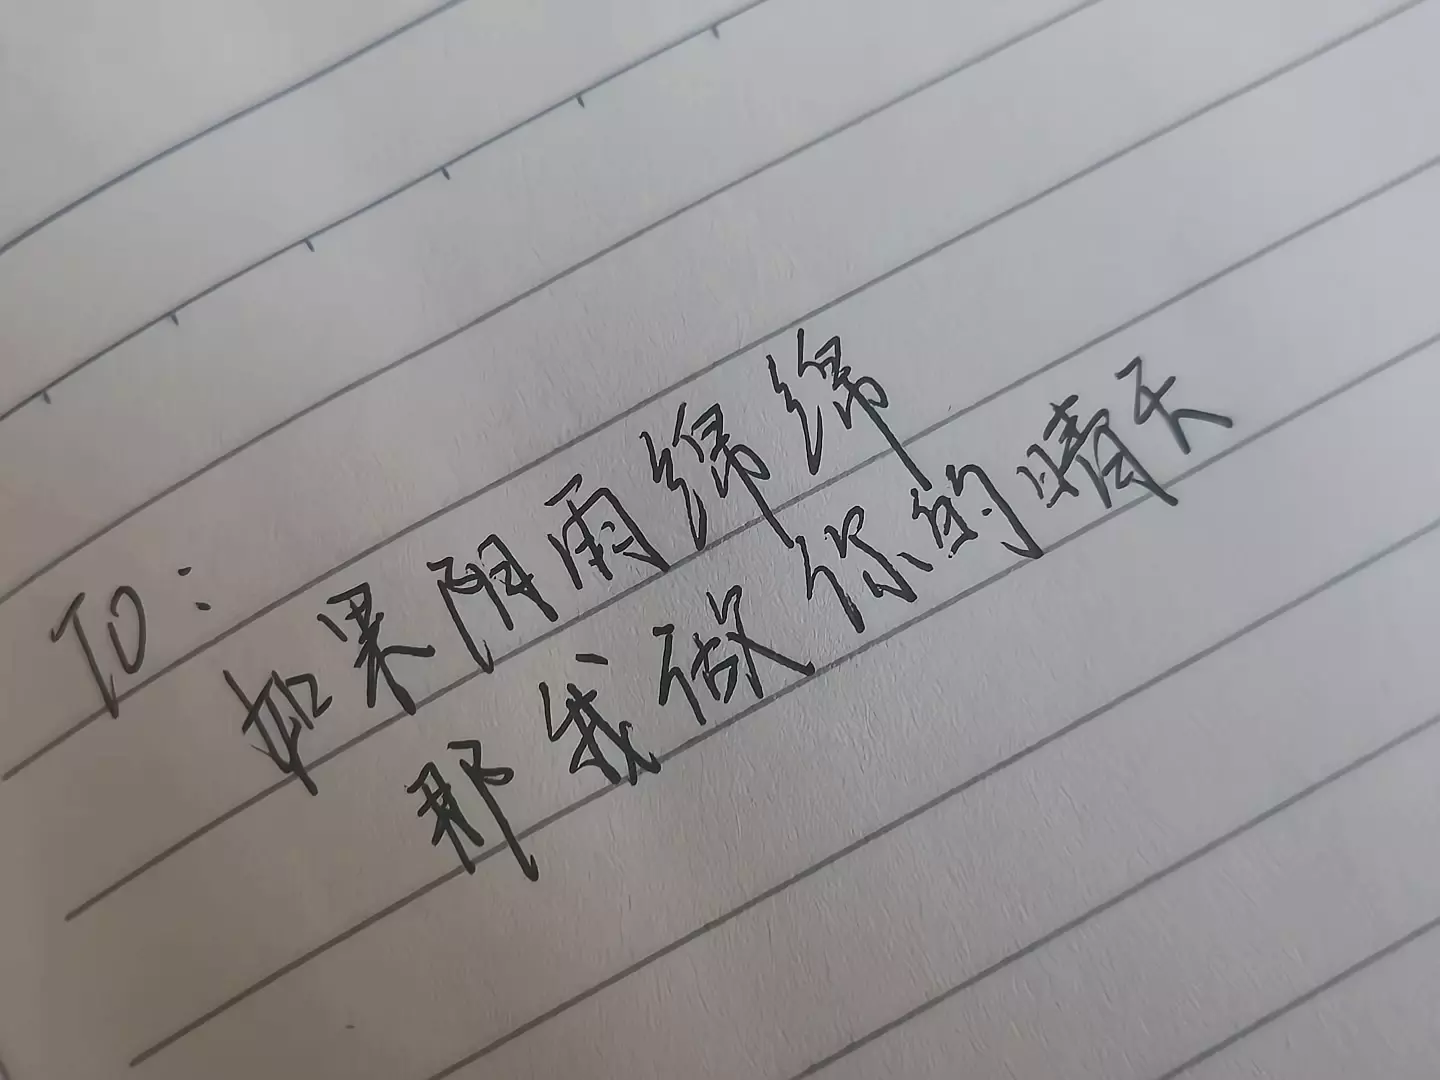 TO:
如果阴雨绵绵
那我做你的晴天